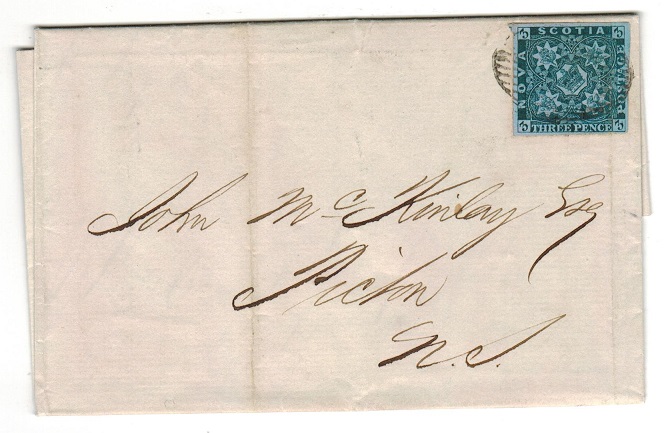 NOVA SCOTIA POSTAGE
THREE PENCE
John Mc Kinlay Esq
Pictou
N.S.